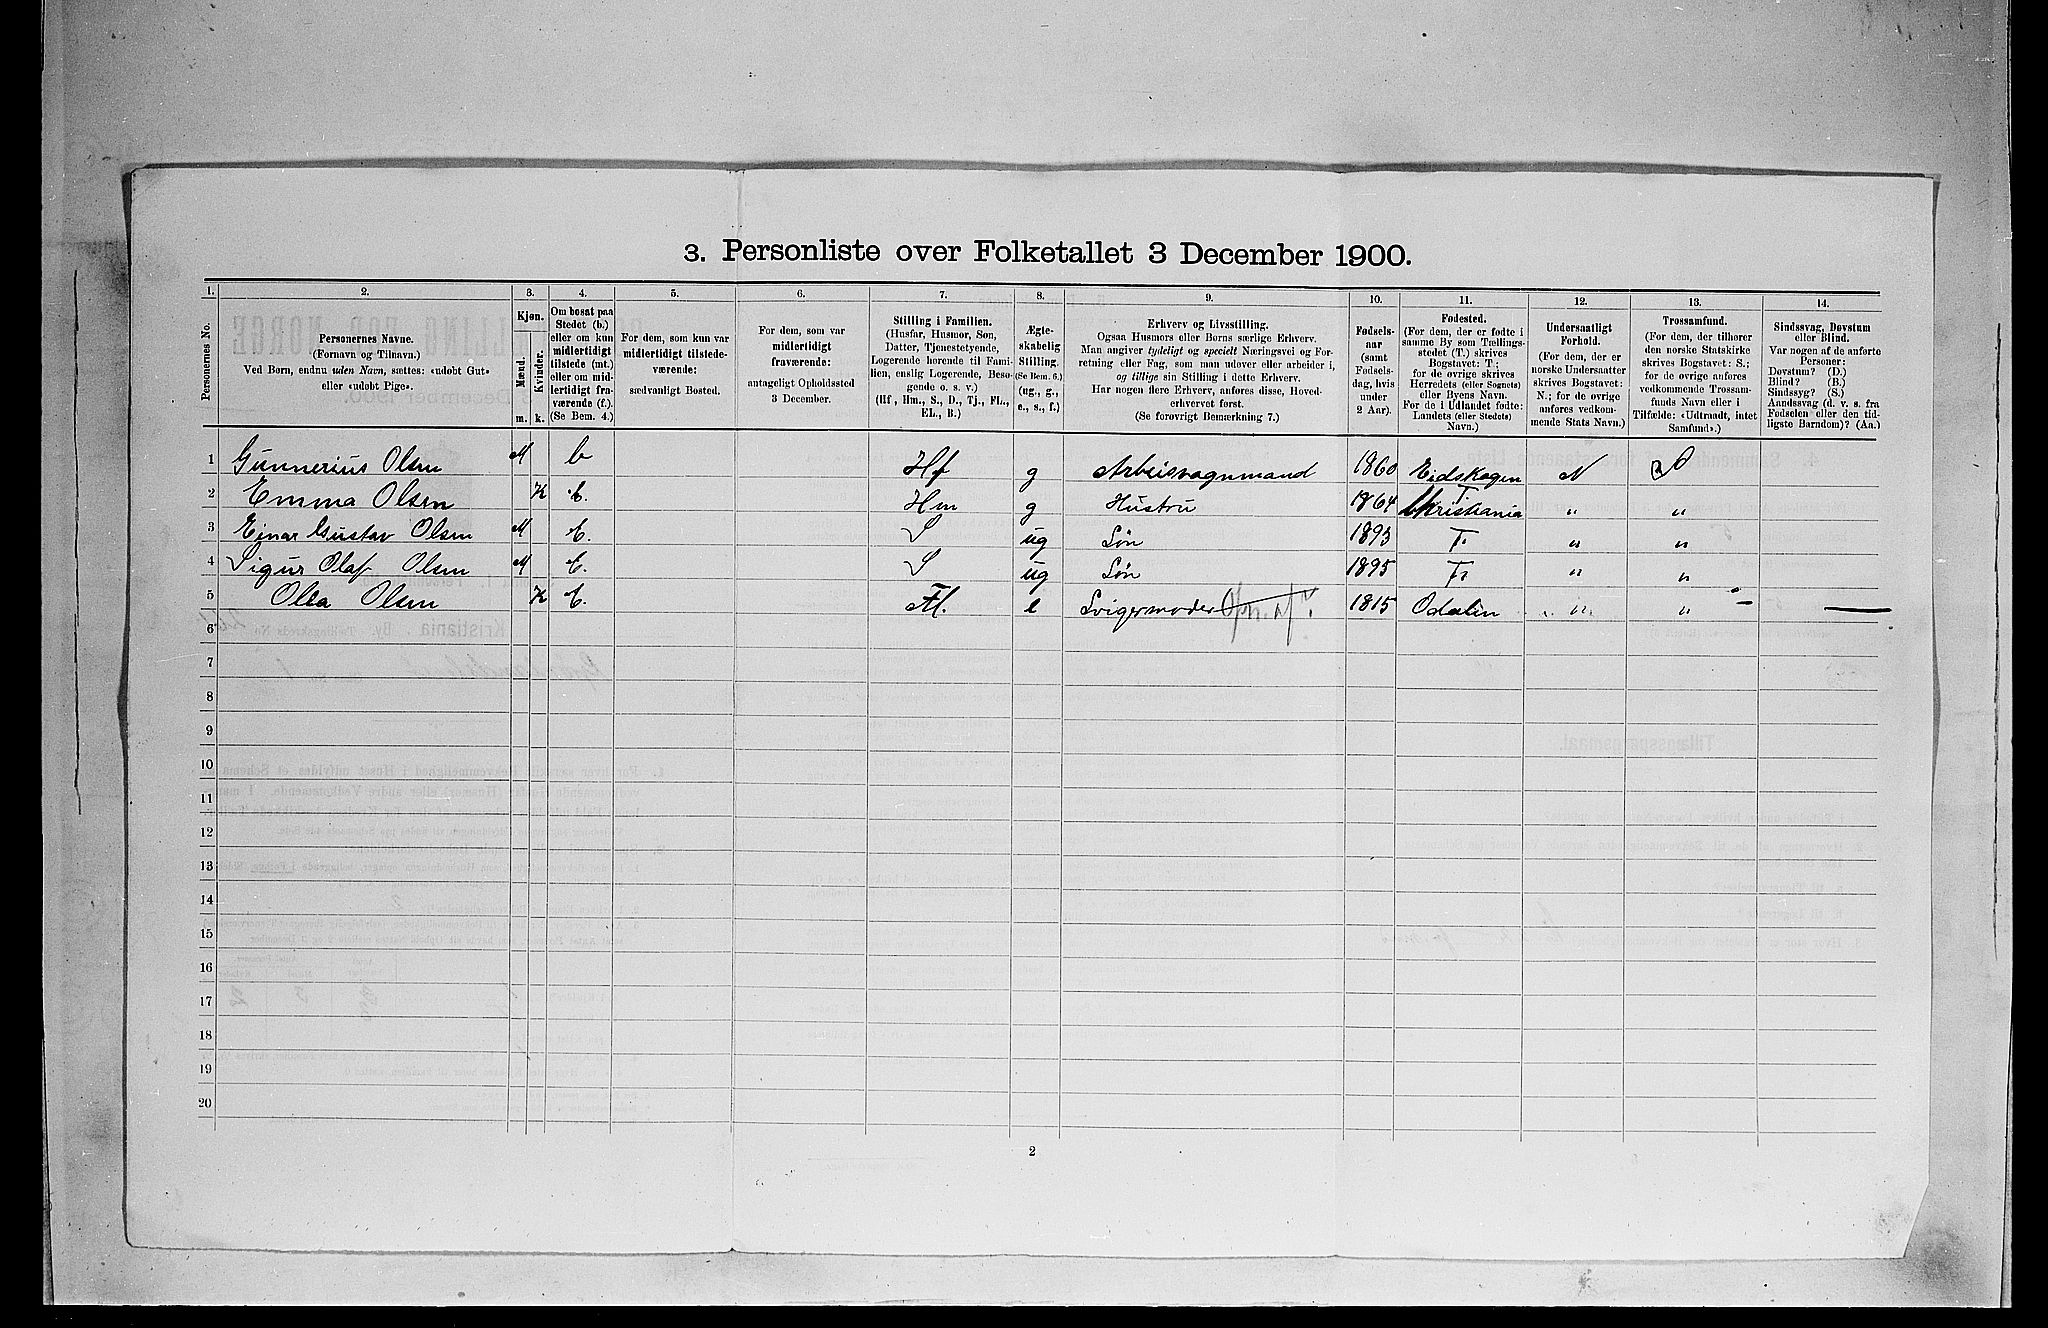 3. Personliste over Folketallet 3 December 1900.
1. 2. 3. 4. 5. 6. 7. 8. 9. 10. 11. 12. 13. 14.
Personernes No.
Personernes Navne.
(Fornavn og Tilnavn.)
Ved Børn, endnu uden Navn, sættes: «udøbt Gut»
eller «udøbt Pige».
Kjøn.
Mænd.
Kvinder.
m. k.
Om bosat paa
Stedet (b.)
eller om kun
midlertidigt
tilstede (mt.)
eller om mid-
lertidigt fra-
værende (f.).
(Se Bem. 4.)
For dem, som kun var
midlertidigt tilstede-
værende:
sædvanligt Bosted.
For dem, som var
midlertidigt
fraværende:
antageligt Opholdssted
3 December.
Stilling i Familien.
(Husfar, Husmor, Søn,
Datter, Tjenestetyende,
Logerende hørende til Fami-
lien, enslig Logerende, Besø-
gende o. s. v.)
(Hf, Hm., S., D., Tj., FL.,
EL., B.)
Ægte-
skabelig
Stilling.
(Se Bem. 6.)
(ug., g.,
e., s., f.)
Erhverv og Livsstilling.
Ogsaa Husmors eller Børns særlige Erhverv.
Man angiver tydeligt og specielt Næringsvei og For-
retning eller Fag, som man udøver eller arbeider i,
og tillige sin Stilling i dette Erhverv.
Har nogen flere Erhverv, anføres disse, Hoved-
erhvervet først.
(Se forøvrigt Bemærkning 7.)
Fødsels-
aar
(samt
Fødsels-
dag, hvis
under
2 Aar).
Fødested.
(For dem, der er fødte i
samme By som Tællings-
stedet (T.) skrives
Bogstavet: T.;
for de øvrige skrives
Herredets (eller Sognets)
eller Byens Navn.
For de i Udlandet fødte:
Landets (eller Stedets)
Navn.)
Undersaatligt
Forhold.
(For dem, der er
norske Undersaatter
skrives Bogstavet:
N.; for de øvrige
anføres vedkom-
mende Stats Navn.)
Trossamfund.
(For dem, der tilhører
den norske Statskirke
skrives Bogstavet: S.;
for de øvrige anføres
vedkommende Trossam-
funds Navn eller i
Tilfælde: «Udtraadt, intet
Samfund».)
Sindssvag, Døvstum
eller Blind.
Var nogen af de anførte
Personer:
Døvstum? (D.)
Blind? (B.)
Sindssyg? (S.)
Aandssvag (d. v. s. fra
Fødselen eller den tid-
ligste Barndom)? (Aa.)
1 Gunnerius Olsen M b Hf g Arbeisvognmand 1860 Eidskogen N S
2 Emma Olsen K b. Hm g Hustru 1864 T. Christiania " "
3 Einar Gustav Olsen M b. S ug Søn 1893 T. " "
4 Sigur Olaf Olsen M b. S ug Søn 1895 T. " "
5 Olea Olsen K b. Fl. e Svigermoder 1815 Odalen " "
6
7
8
9
10
11
12
13
14
15
16
17
18
19
20
2